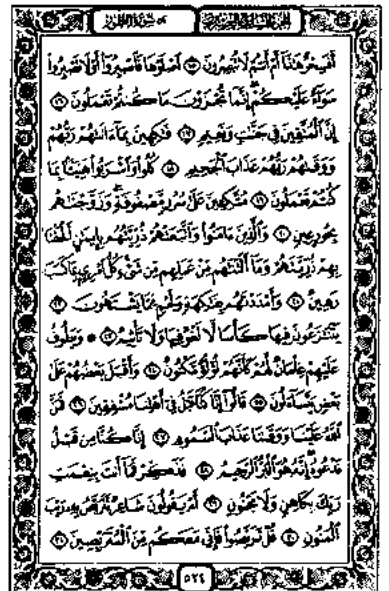 الجزء السابع والعشرون سورة الطور ٥٢
أَفَسِحْرٌ هَٰذَا أَمْ أَنتُمْ لَا تُبْصِرُونَ ١٥ ٱصْلَوْهَا فَٱصْبِرُوٓا۟ أَوْ لَا تَصْبِرُوا۟
سَوَآءٌ عَلَيْكُمْ إِنَّمَا تُجْزَوْنَ مَا كُنتُمْ تَعْمَلُونَ ١٦
إِنَّ ٱلْمُتَّقِينَ فِى جَنَّٰتٍ وَنَعِيمٍ ١٧ فَٰكِهِينَ بِمَآ ءَاتَىٰهُمْ رَبُّهُمْ
وَوَقَىٰهُمْ رَبُّهُمْ عَذَابَ ٱلْجَحِيمِ ١٨ كُلُوا۟ وَٱشْرَبُوا۟ هَنِيٓـًٔۢا بِمَا
كُنتُمْ تَعْمَلُونَ ١٩ مُتَّكِـِٔينَ عَلَىٰ سُرُرٍ مَّصْفُوفَةٍ وَزَوَّجْنَٰهُم
بِحُورٍ عِينٍ ٢٠ وَٱلَّذِينَ ءَامَنُوا۟ وَٱتَّبَعَتْهُمْ ذُرِّيَّتُهُم بِإِيمَٰنٍ أَلْحَقْنَا
بِهِمْ ذُرِّيَّتَهُمْ وَمَآ أَلَتْنَٰهُم مِّنْ عَمَلِهِم مِّن شَىْءٍ كُلُّ ٱمْرِئٍ بِمَا كَسَبَ
رَهِينٌ ٢١ وَأَمْدَدْنَٰهُم بِفَٰكِهَةٍ وَلَحْمٍ مِّمَّا يَشْتَهُونَ ٢٢
يَتَنَٰزَعُونَ فِيهَا كَأْسًا لَّا لَغْوٌ فِيهَا وَلَا تَأْثِيمٌ ٢٣ ۞ وَيَطُوفُ
عَلَيْهِمْ غِلْمَانٌ لَّهُمْ كَأَنَّهُمْ لُؤْلُؤٌ مَّكْنُونٌ ٢٤ وَأَقْبَلَ بَعْضُهُمْ عَلَىٰ
بَعْضٍ يَتَسَآءَلُونَ ٢٥ قَالُوٓا۟ إِنَّا كُنَّا قَبْلُ فِىٓ أَهْلِنَا مُشْفِقِينَ ٢٦ فَمَنَّ
ٱللَّهُ عَلَيْنَا وَوَقَىٰنَا عَذَابَ ٱلسَّمُومِ ٢٧ إِنَّا كُنَّا مِن قَبْلُ
نَدْعُوهُ إِنَّهُۥ هُوَ ٱلْبَرُّ ٱلرَّحِيمُ ٢٨ فَذَكِّرْ فَمَآ أَنتَ بِنِعْمَتِ
رَبِّكَ بِكَاهِنٍ وَلَا مَجْنُونٍ ٢٩ أَمْ يَقُولُونَ شَاعِرٌ نَّتَرَبَّصُ بِهِۦ رَيْبَ
ٱلْمَنُونِ ٣٠ قُلْ تَرَبَّصُوا۟ فَإِنِّى مَعَكُم مِّنَ ٱلْمُتَرَبِّصِينَ ٣١
٥٢٤